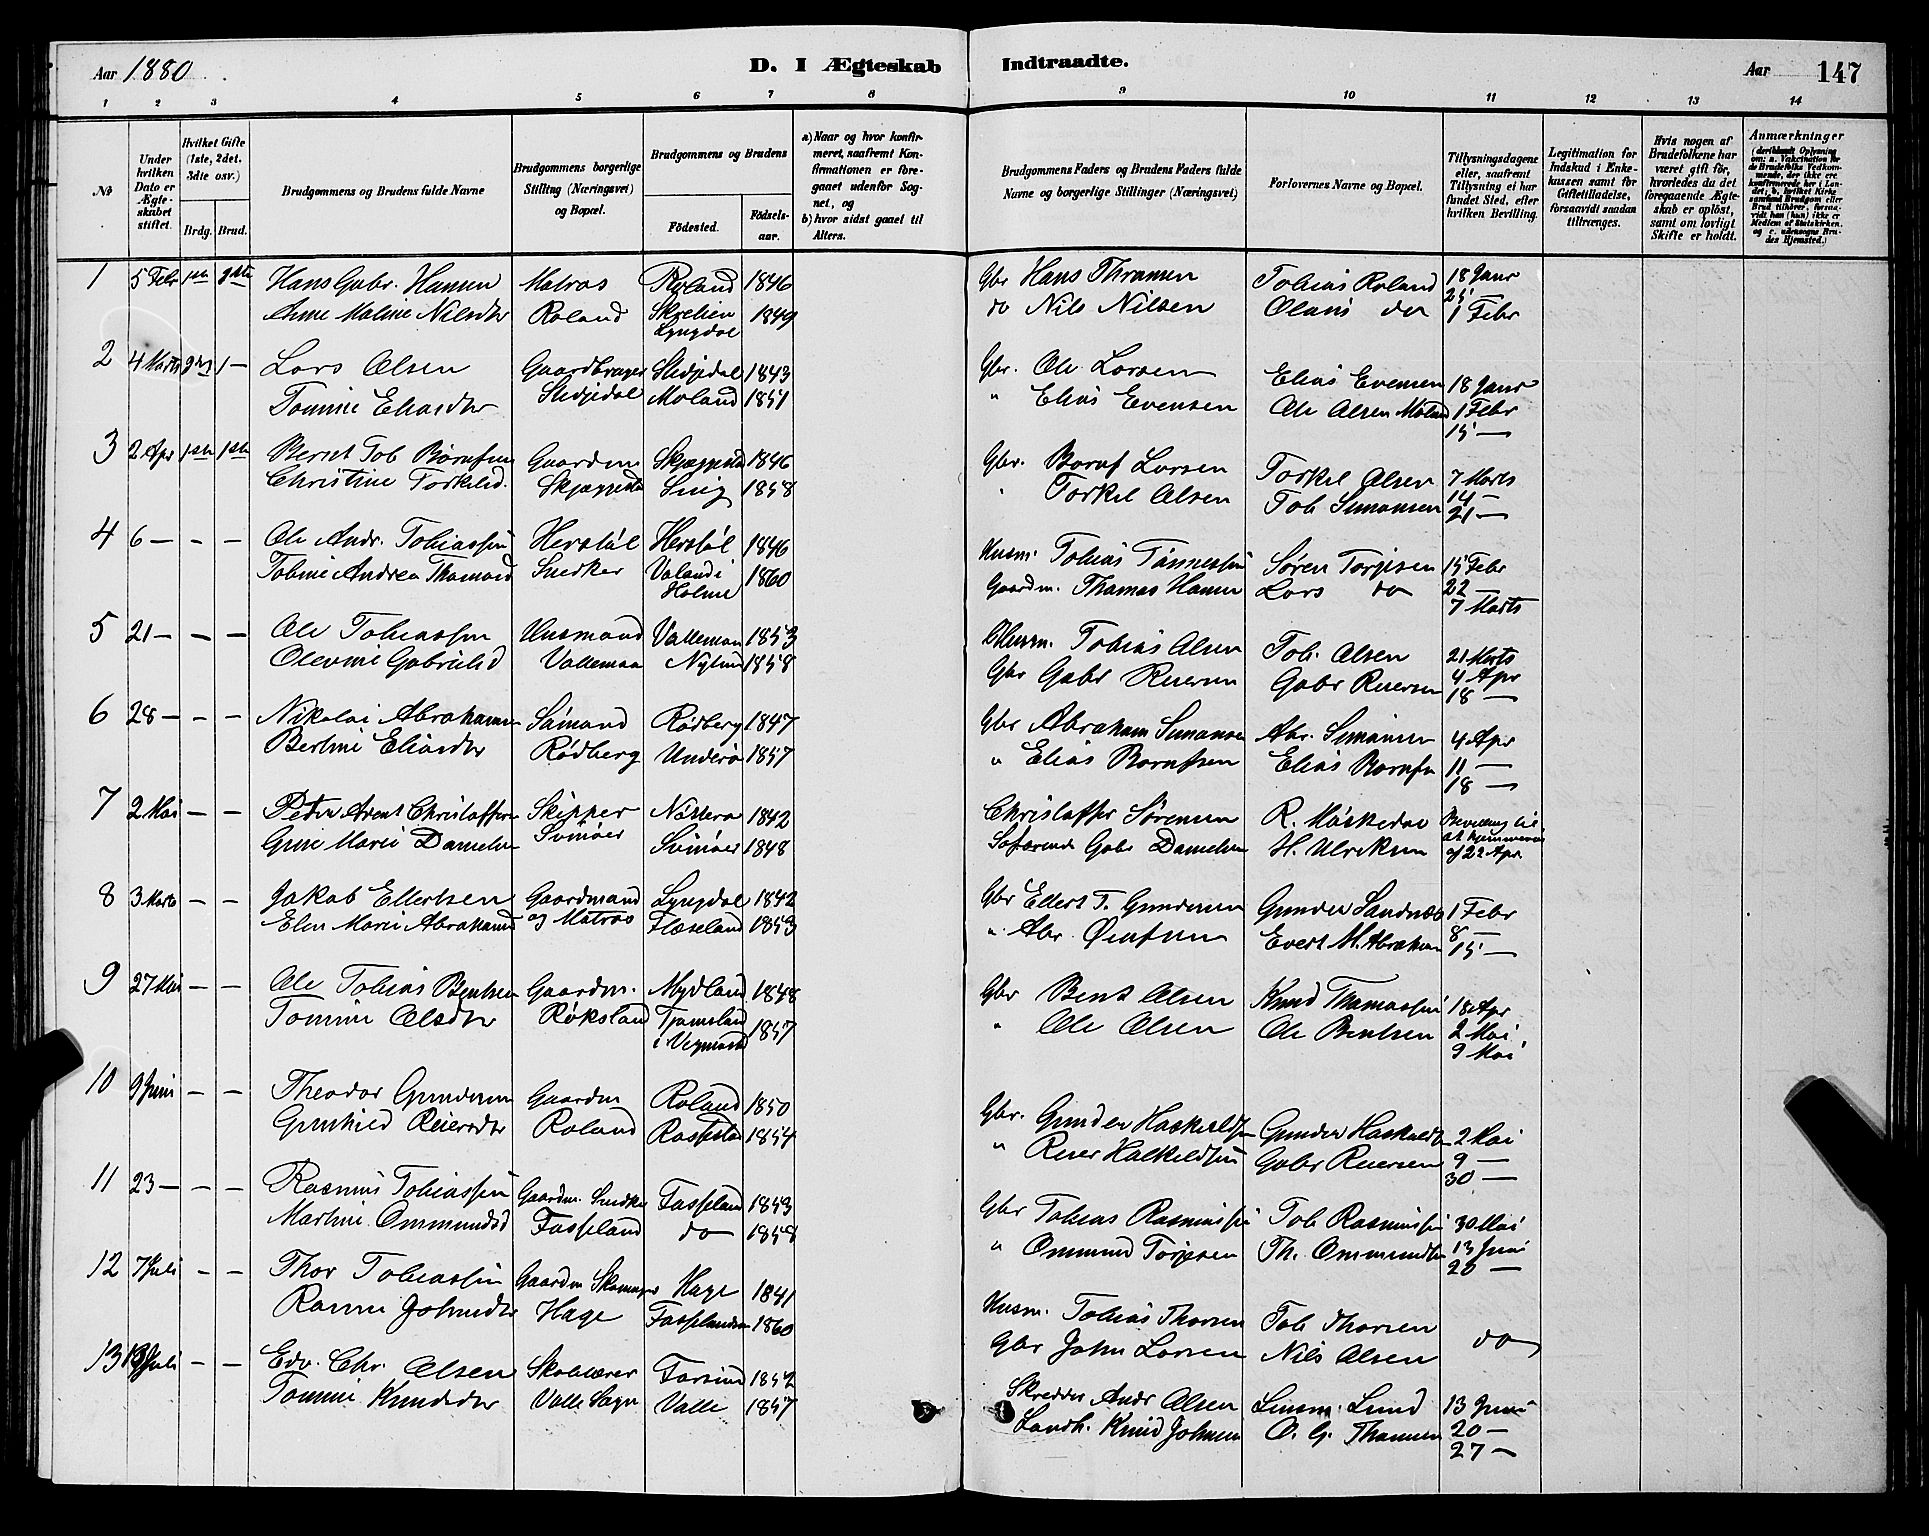 Aar 1880
D. I Ægteskab Indtraadte.
Aar 147
1 2 3 4 5 6 7 8 9 10 11 12 13 14
No
Under hvilken Dato er Ægteskabet stiftet.
Hvilket Gifte (1ste, 2det, 3die osv.)
Brdg. Brud.
Brudgommens og Brudens fulde Navne
Brudgommens borgerlige Stilling (Næringsvei) og Bopæl.
Brudgommens og Brudens
Fødested.
Fødselsaar.
a) Naar og hvor konfirmeret, saafremt Konfirmationen er foregaaet udenfor Sognet, og
b) hvor sidst gaaet til Alters.
Brudgommens Faders og Brudens Faders fulde Navne og borgerlige Stillinger (Næringsvei)
Forlovernes Navne og Bopæl.
Tillysningsdagene eller, saafremt Tillysning ei har fundet Sted, efter hvilken Bevilling.
Legitimation for Indskud i Enkekassen samt for Giftetilladelse, forsaavidt saadan tiltrænges.
Hvis nogen af Brudefolkene har været gift før, hvorledes da det foregaaende Ægteskab er opløst, samt om lovligt Skifte er holdt.
Anmærkninger
1 5 Febr 1ste 1ste Hans Gabr. Hansen Matros Roland 1846 Gbr Hans Thramsen Tobias Roland 18 Janr
25
Anne Maline Nilsdtr Roland Skrelien Lyngdal 1849 do Nils Nilsen Olaus do 1 Febr
2 4 Marts 2den 1 — Lars Olsen Gaardbruger Stedjedal 1843 Gbr. Ole Larsen Elias Evensen 18 Janr
Tomine Eliasdtr Stedjedal Moland 1851 " Elias Evensen Ole Olsen Moland 1 Febr
15 —
3 2 Apr 1ste 1ste Berent Tob Børufsen Gaardm Skjeggestad 1846 Gbr. Boruf Larsen Torkel Olsen 7 Marts
Christine Torkelsd. Skjeggestad Snig 1858 " Torkel Olsen Tob Simonsen 14 —
21 —
4 6 — — — Ole Andr. Tobiassen Herstøl Herstøl 1846 Husm. Tobias Tønnessen Søren Torjesen 15 Febr
Tobine Andrea Thomasd Snedker Valand i Holme 1860 Gaardm. Thomas Hansen Lars do 22 —
7 Marts
5 21 — — — Ole Tobiassen Husmand Vallemoen 1853 Husm. Tobias Olsen Tob. Olsen 21 Marts
Olevine Gabrielsd Vallemoa Nylund 1858 Gbr Gabr Reiersen Gabr Reiersen 4 Apr
18 —
6 28 — — — Nikolai Abrahamsen Sømand Rødberg 1847 Gbr Abraham Simonsen Abr. Simonsen 4 Apr
Bertine Eliasdtr Rødberg Underø 1857 " Elias Børufsen Elias Børufsen 11 —
18 —
7 2 Mai — — Peter Arent Christoffersen Skipper 1842 Christoffer Sørensen R. Møskedal Bevilling til
Gine Marie Danielsen Svinøer Svinøer 1848 Søfarende Gabr Danielsen H. Ulriksen af 22 Apr
8 3 Marts — — Jakob Ellertsen Gaardmand Lyngdal 1842 Gbr Ellert T. Gundersen Gunder Sandnæs 1 Febr
Elen Marie Abrahamsd og Matros Fleseland 1853 " Abr. Evert M. Abraham 8 —
15 —
9 27 Mai — — Ole Tobias Bentsen Gaardm. Mydland 1848 Gbr Bent Olsen Knud Thomassen 18 Apr
Tomine Olsdtr Røksland Tjomsland i Vegusdal 1857 " Ole Olsen Ole Bentsen 2 Mai
9 Mai
10 9 Juni — — Theodor Gundersen Gaardm Roland 1850 Gbr. Gunder Haskeldsen Gunder Haskelds 2 Mai
Gunhild Reiersdtr Roland Rosfestad 1854 " Reier Halkeldsen Gabr Reiersen 9 —
30 —
11 23 — — — Rasmus Tobiassen Gaardm. Snedker Fasseland 1843 Gbr Tobias Rasmussen Tob Rasmussen 30 Mai
Martine Ommundsd Fasseland do 1858 " Ommund Torjesen Th. Ommundsen 13 Juni
20 —
12 7 Juli — — Thor Tobiassen Gaardm Skomager Hage 1841 Husm. Tobias Thorsen Tob Thorsen do
Johnsdtr Hage Fasselandsm 1860 Gbr John Larsen Nils Olsen
13 13 Juli — — Edv. Chr. Olsen Skolelærer Farsund 1852 Skredder Andr Olsen Lensm. Lund 13 Juni
Tomine Knudsdtr Valle Sogn Valle 1857 Landh. Knud Johnsen O. G. Thomsen 20 —
27 —